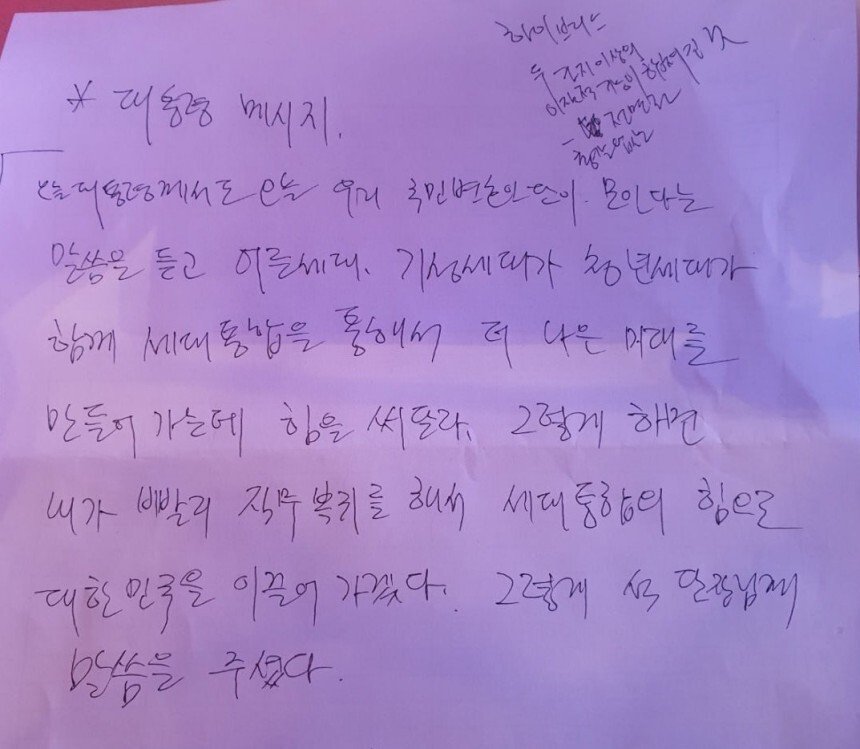 하이브리스
두 가지 이상의
이질적 기능이 합쳐진 것
* 대통령 메시지.
오늘 대통령께서도 오늘 우리 국민변호인단이 모인다는
말씀을 듣고 어른세대, 기성세대가 청년세대가
함께 세대통합을 통해서 더 나은 미래를
만들어 가는데 힘을 써달라, 그렇게 하면
내가 빨리 직무복귀를 해서 세대통합의 힘으로
대한민국을 이끌어 가겠다. 그렇게 석 단장님께
말씀을 주셨다.